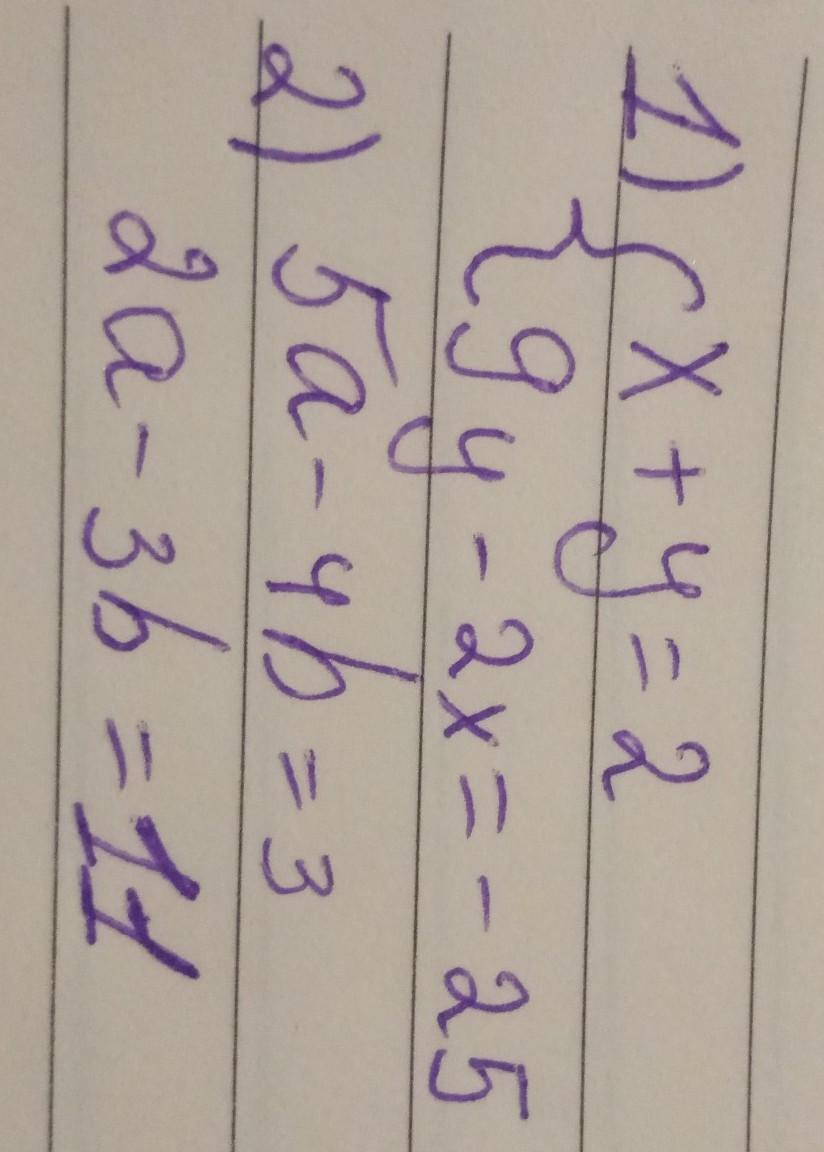 1) { x + y = 2
9y - 2x = - 25
2) 5a - 4b = 3
2a - 3b = 11